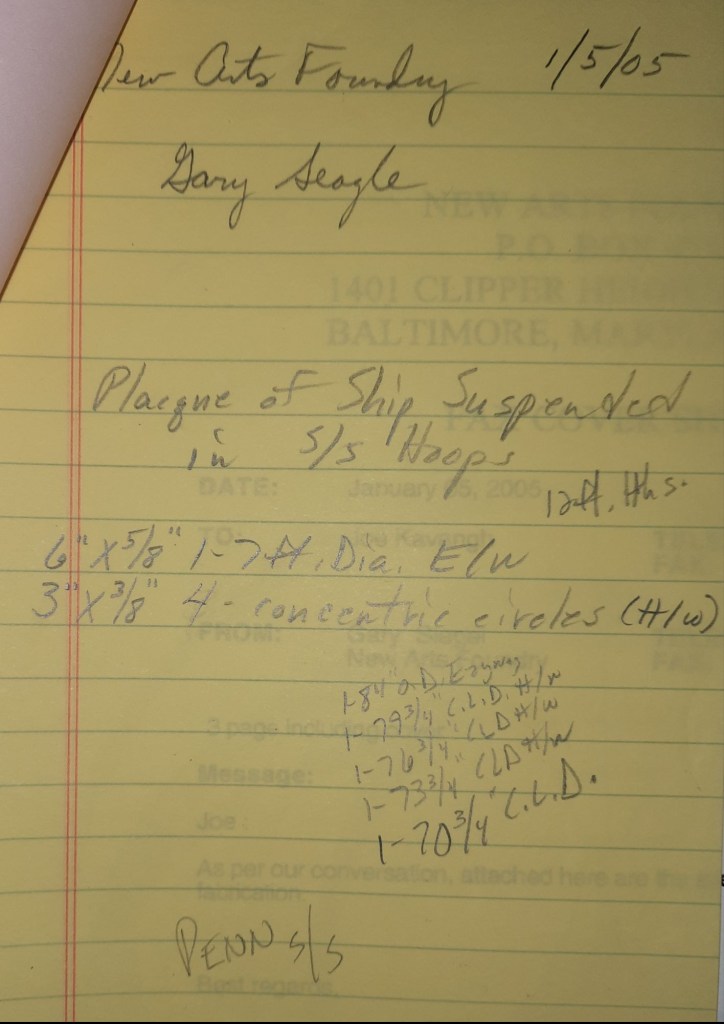 New Arts Foundry 1/5/05
Gary Seagle
NEW ARTS
P.O. BOX
1401 CLIPPER
BALTIMORE,
Placque of Ship Suspended
in S/S Hoops
COVER
DATE: January 05, 2005
12 ft. Hhs.
TO: Joe Kavanagh
6" X 5/8" 1-7 ft. Dia. E/W
3" X 3/8" 4 - concentric circles (H/W)
FROM: Gary
New Arts Foundry
1-84" O.D. Easyway
1-79 3/4" C.L.D. H/W
1-76 3/4" CLD H/W
1-73 3/4 CLD H/W
1-70 3/4" C.L.D.
3 page including
Message:
Joe
As per our conversation, attached here are the
fabrication.
PENN S/S
Best regards,